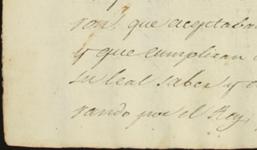 ron, que aceptaba
y que cumpliran
su leal saber y
rando por el Rey,